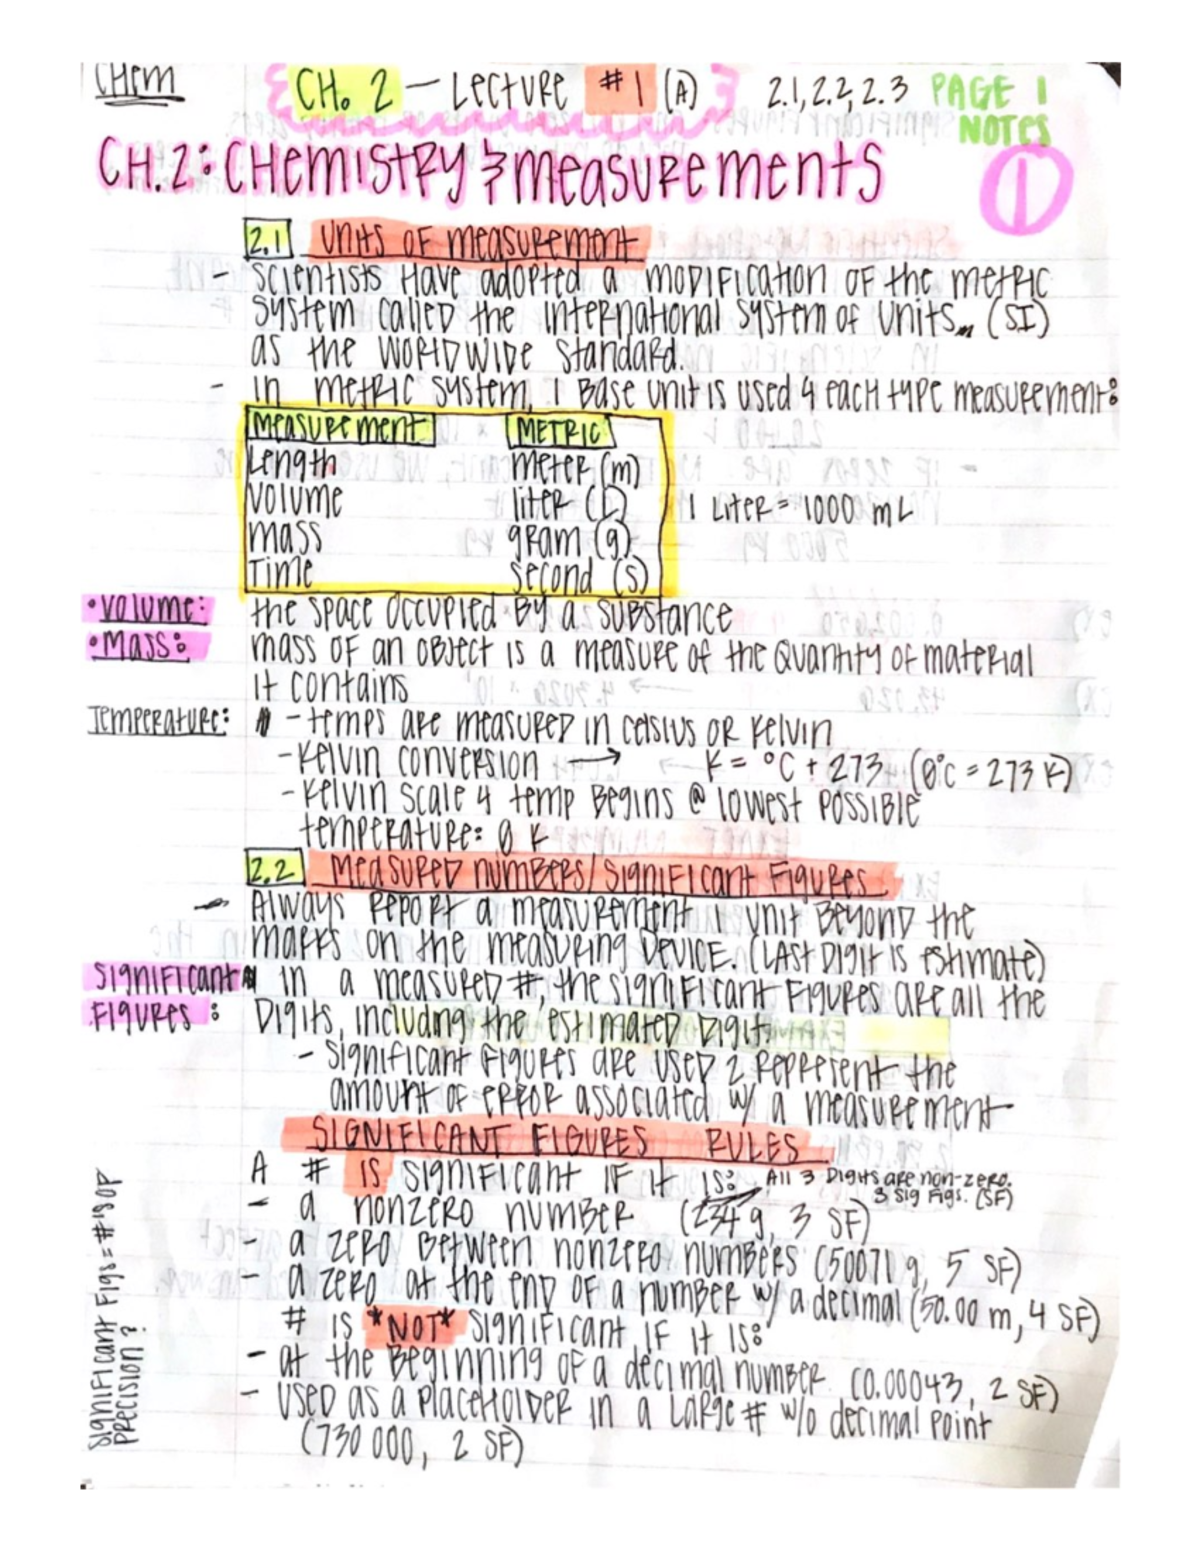 CHem
CH. 2 – Lecture #1 (A) 2.1, 2.2, 2.3 PAGE 1 NOTES
CH. 2: CHemistry & measurements
1
2.1 Units of measurement
- Scientists Have adopted a modification of the metric
System called the International System of Units (SI)
as the Worldwide Standard.
- in metric system, 1 Base unit is used 4 each type measurement:
Measurement METRIC
Length meter (m)
Volume liter (L) 1 Liter = 1000 mL
mass gram (g)
Time second (s)
• Volume: the space occupied by a substance
• Mass: mass of an object is a measure of the Quantity of material
it contains
Temperature: - temps are measured in celsius or Kelvin
- Kelvin conversion → K = °C + 273 (0°c = 273 K)
- Kelvin scale 4 temp Begins @ lowest possible
temperature: 0 K
2.2 Measured numbers/Significant Figures
- Always report a measurement 1 unit Beyond the
marks on the measuring device. (Last Digit is estimate)
Significant in a measured #, the significant Figures are all the
Figures: Digits, including the estimated Digit.
- Significant figures are used 2 represent the
amount of error associated w/ a measurement
SIGNIFICANT FIGURES RULES
A # is significant if it is: All 3 Digits are non-zero.
3 Sig Figs. (SF)
- a nonzero number (234 g, 3 SF)
- a zero Between nonzero numbers (50071 g, 5 SF)
- a zero at the end of a number w/ a decimal (50.00 m, 4 SF)
# is *NOT* significant if it is:
- at the Beginning of a decimal number (0.00043, 2 SF)
- used as a placeholder in a large # w/o decimal point
(730 000, 2 SF)
Significant Figs = #'s of
precision?